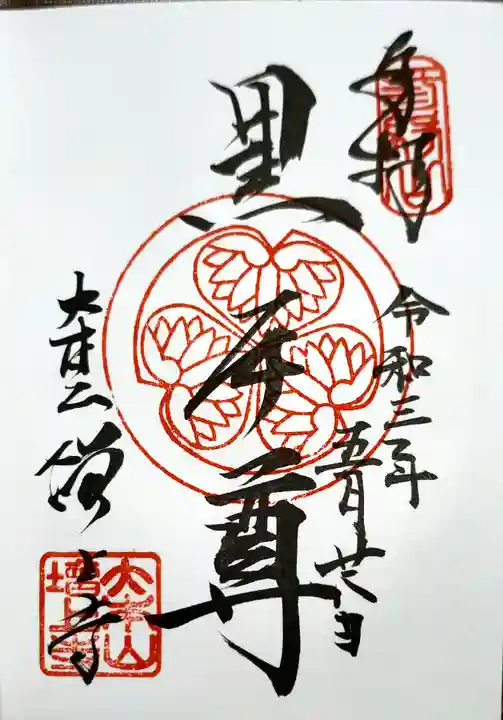 奉拝
令和三年
五月廿七日
黒本尊
大本山
増上寺
大本山
増上寺